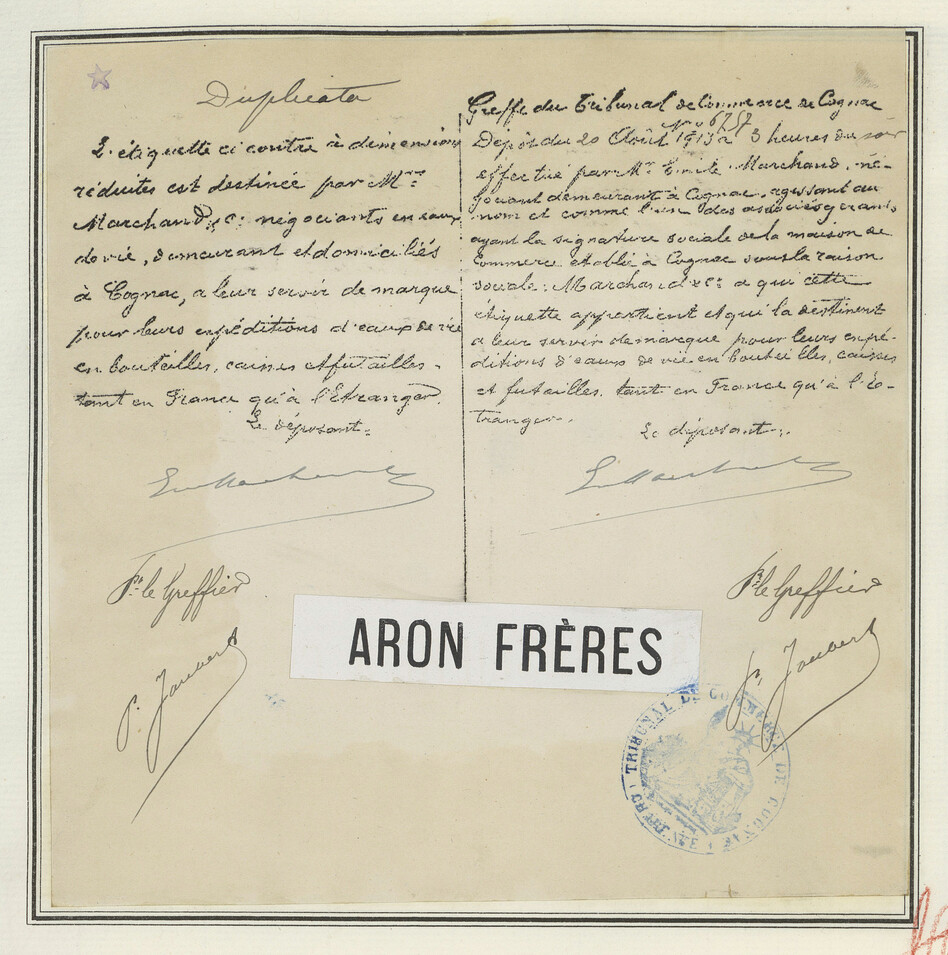 Duplicata
L'étiquette ci contre à dimensions
réduites est destinée par M.rs
Marchand & Cie négociants en eaux
de vie, demeurant et domiciliés
à Cognac, a leur servir de marque
pour leurs expéditions d'eaux de vie
en bouteilles, caisses et futailles.
tant en France qu'à l'Etranger.
Le déposant.
Em Marchand
Pr. le Greffier
P. Joubert
Greffe du Tribunal de Commerce de Cognac
No 6757
Dépôt du 20 Août 1913 à 3 heures du soir
effectué par Mr Emile Marchand, né-
gociant demeurant à Cognac, agissant au
nom et comme l'un des associés gérants
ayant la signature sociale de la maison de
Commerce établie à Cognac sous la raison
sociale: Marchand & Cie a qui cette
étiquette appartient et qui la destinent
a leur servir de marque pour leurs expé-
ditions d'eaux de vie en bouteilles, caisses
et futailles. tant en France qu'à l'é-
tranger.
Le déposant.
Em Marchand
Pr le Greffier
P. Joubert
ARON FRÈRES
TRIBUNAL DE COMMERCE DE COGNAC